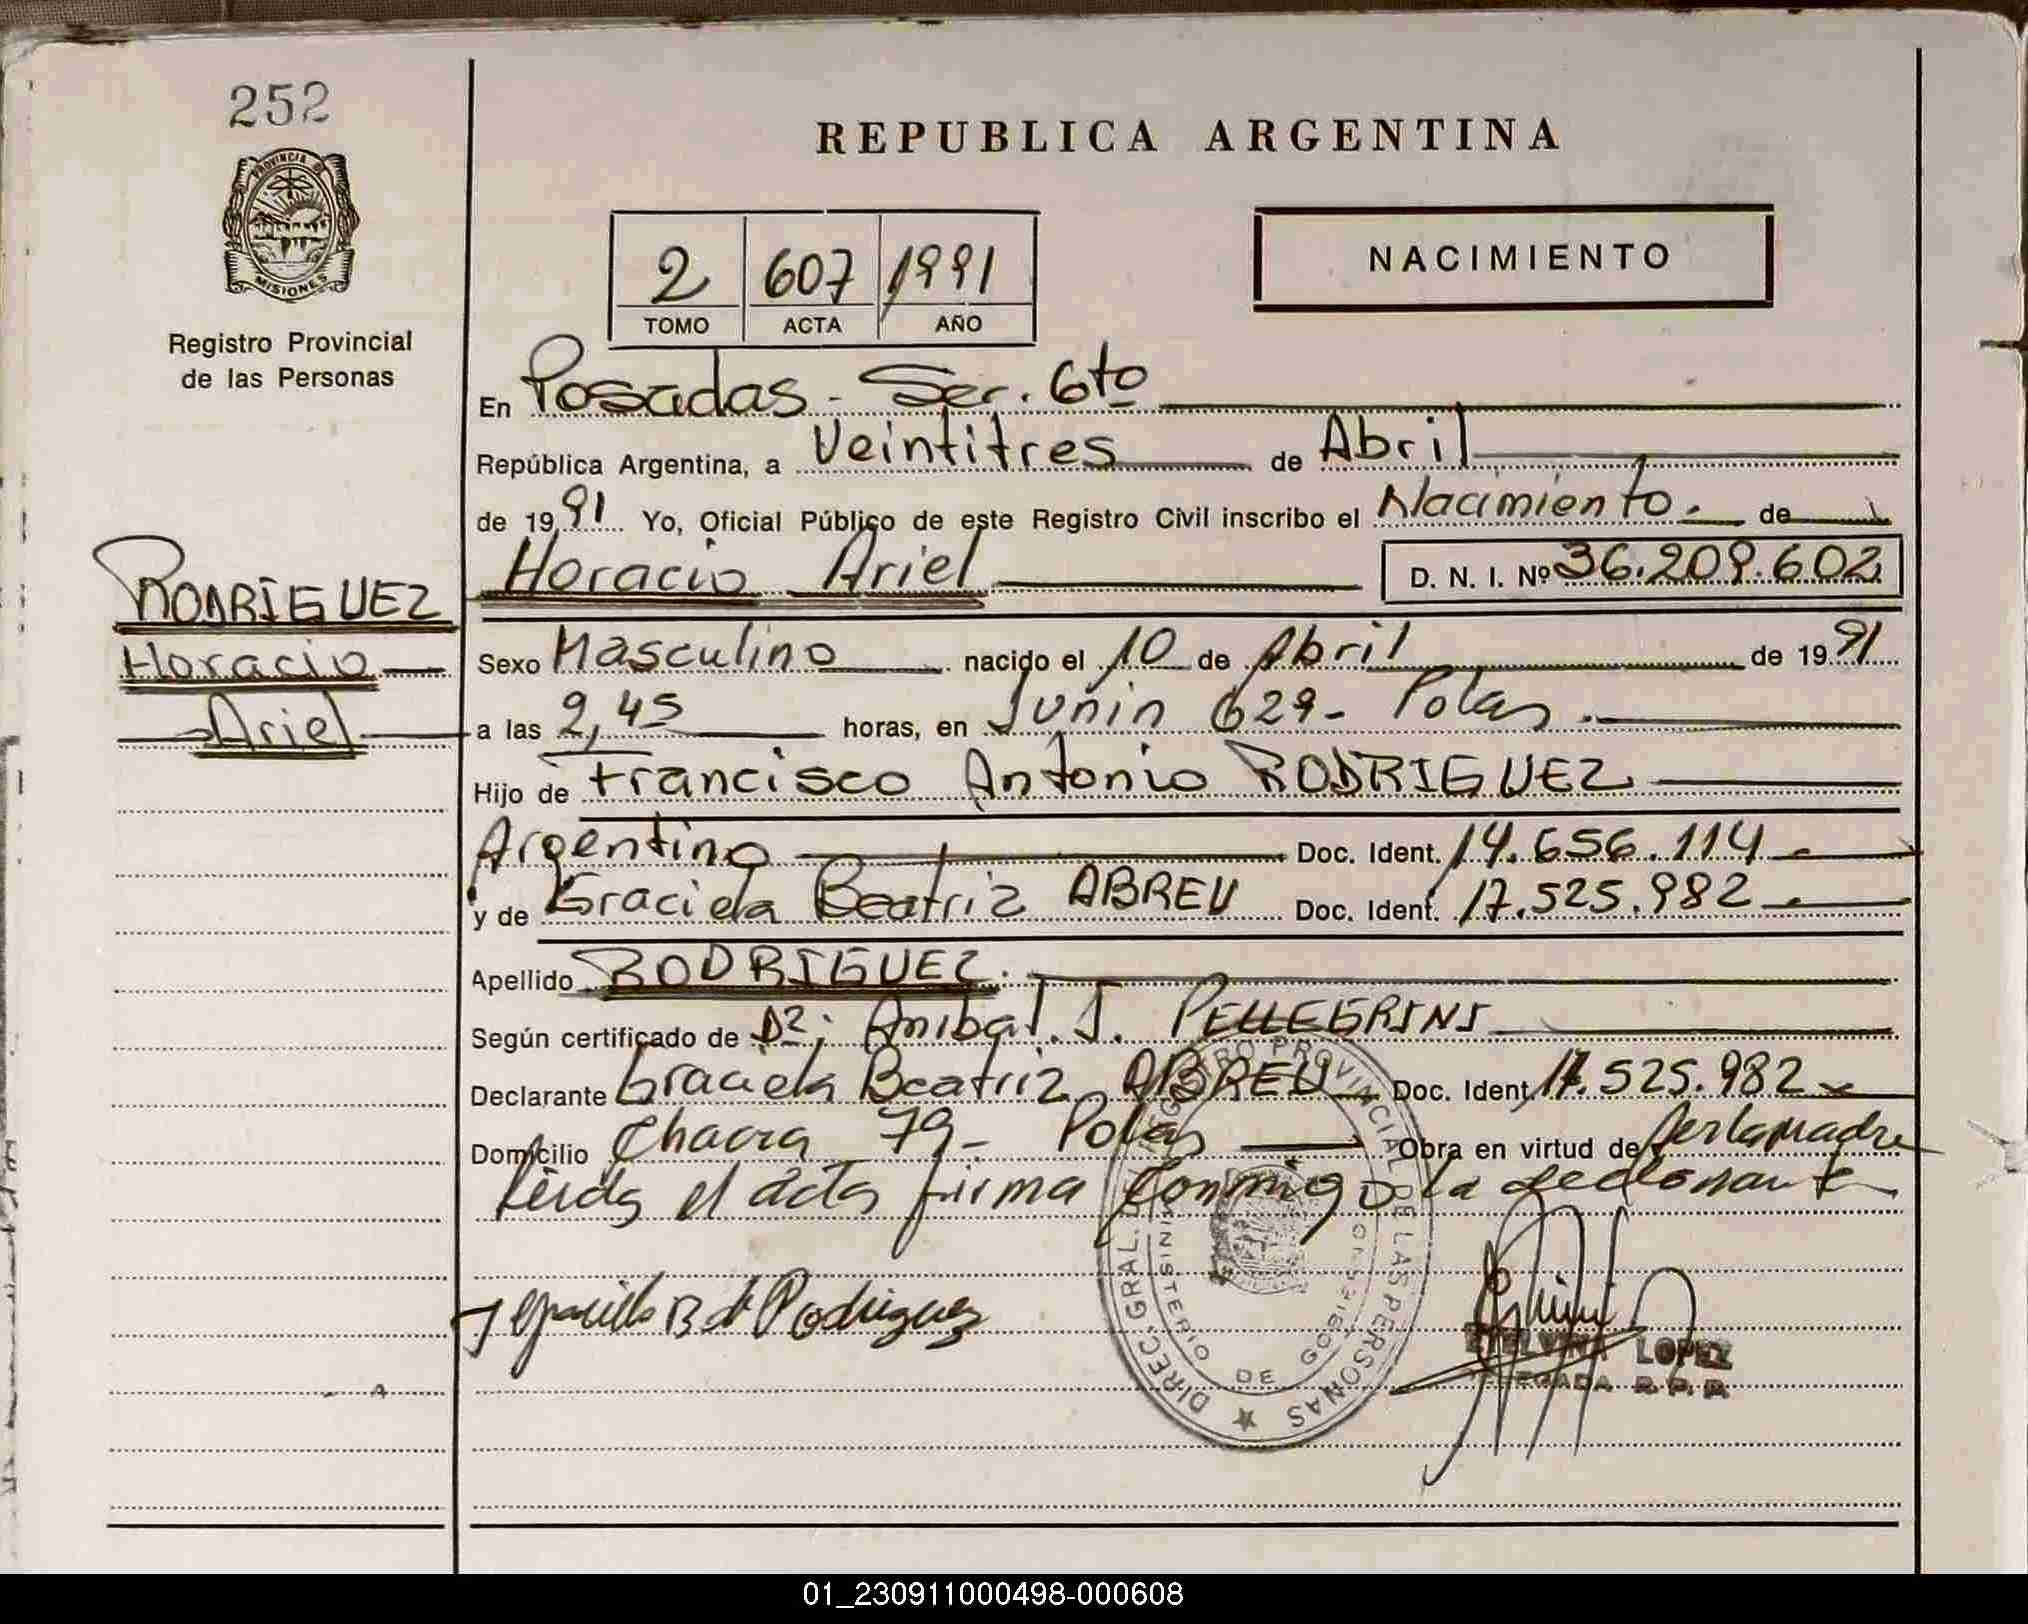 252
PROVINCIA DE
MISIONES
Registro Provincial
de las Personas
RODRIGUEZ
Horacio
Ariel
REPUBLICA ARGENTINA
2 607 1991
TOMO ACTA AÑO
NACIMIENTO
En Posadas - Sec. 6to
República Argentina, a Veintitres de Abril
de 1991 Yo, Oficial Público de este Registro Civil inscribo el Nacimiento. de
Horacio Ariel D. N. I. Nº 36.209.602
Sexo Masculino nacido el 10 de Abril de 1991
a las 2,45 horas, en Junin 629- Pdas.
Hijo de Francisco Antonio RODRIGUEZ
Argentino Doc. Ident. 14.656.114
y de Graciela Beatriz ABREU Doc. Ident. 17.525.982
Apellido RODRIGUEZ.
Según certificado de Anibal J. PELLEGRINI
Declarante Graciela Beatriz ABREU Doc. Ident. 17.525.982
Domicilio Chacra 79- Pdas Obra en virtud de Ser la madre
Leida el acta firma conmigo la declarante
Graciela B de Rodriguez
DIREC. GRAL. DEL REGISTRO PROVINCIAL DE LAS PERSONAS
MINISTERIO DE GOBIERNO
ETELVINA LOPEZ
DELEGADA R.P.P.
01_230911000498-000608